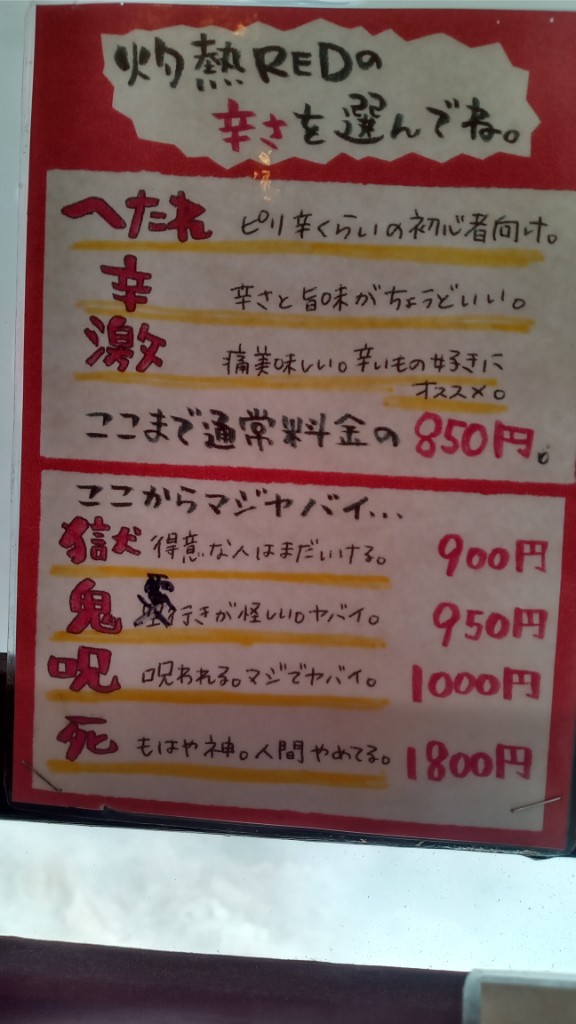 灼熱REDの
辛さを選んでね。
へたれ ピリ辛くらいの初心者向け。
辛 辛さと旨味がちょうどいい。
激 痛美味しい。辛いもの好きに
オススメ。
ここまで通常料金の850円。
ここからマジヤバイ...
獄 得意な人はまだいける。 900円
鬼 行きが怪しい。ヤバイ。 950円
呪 呪われる。マジでヤバイ。 1000円
死 もはや神。人間やめてる。 1800円